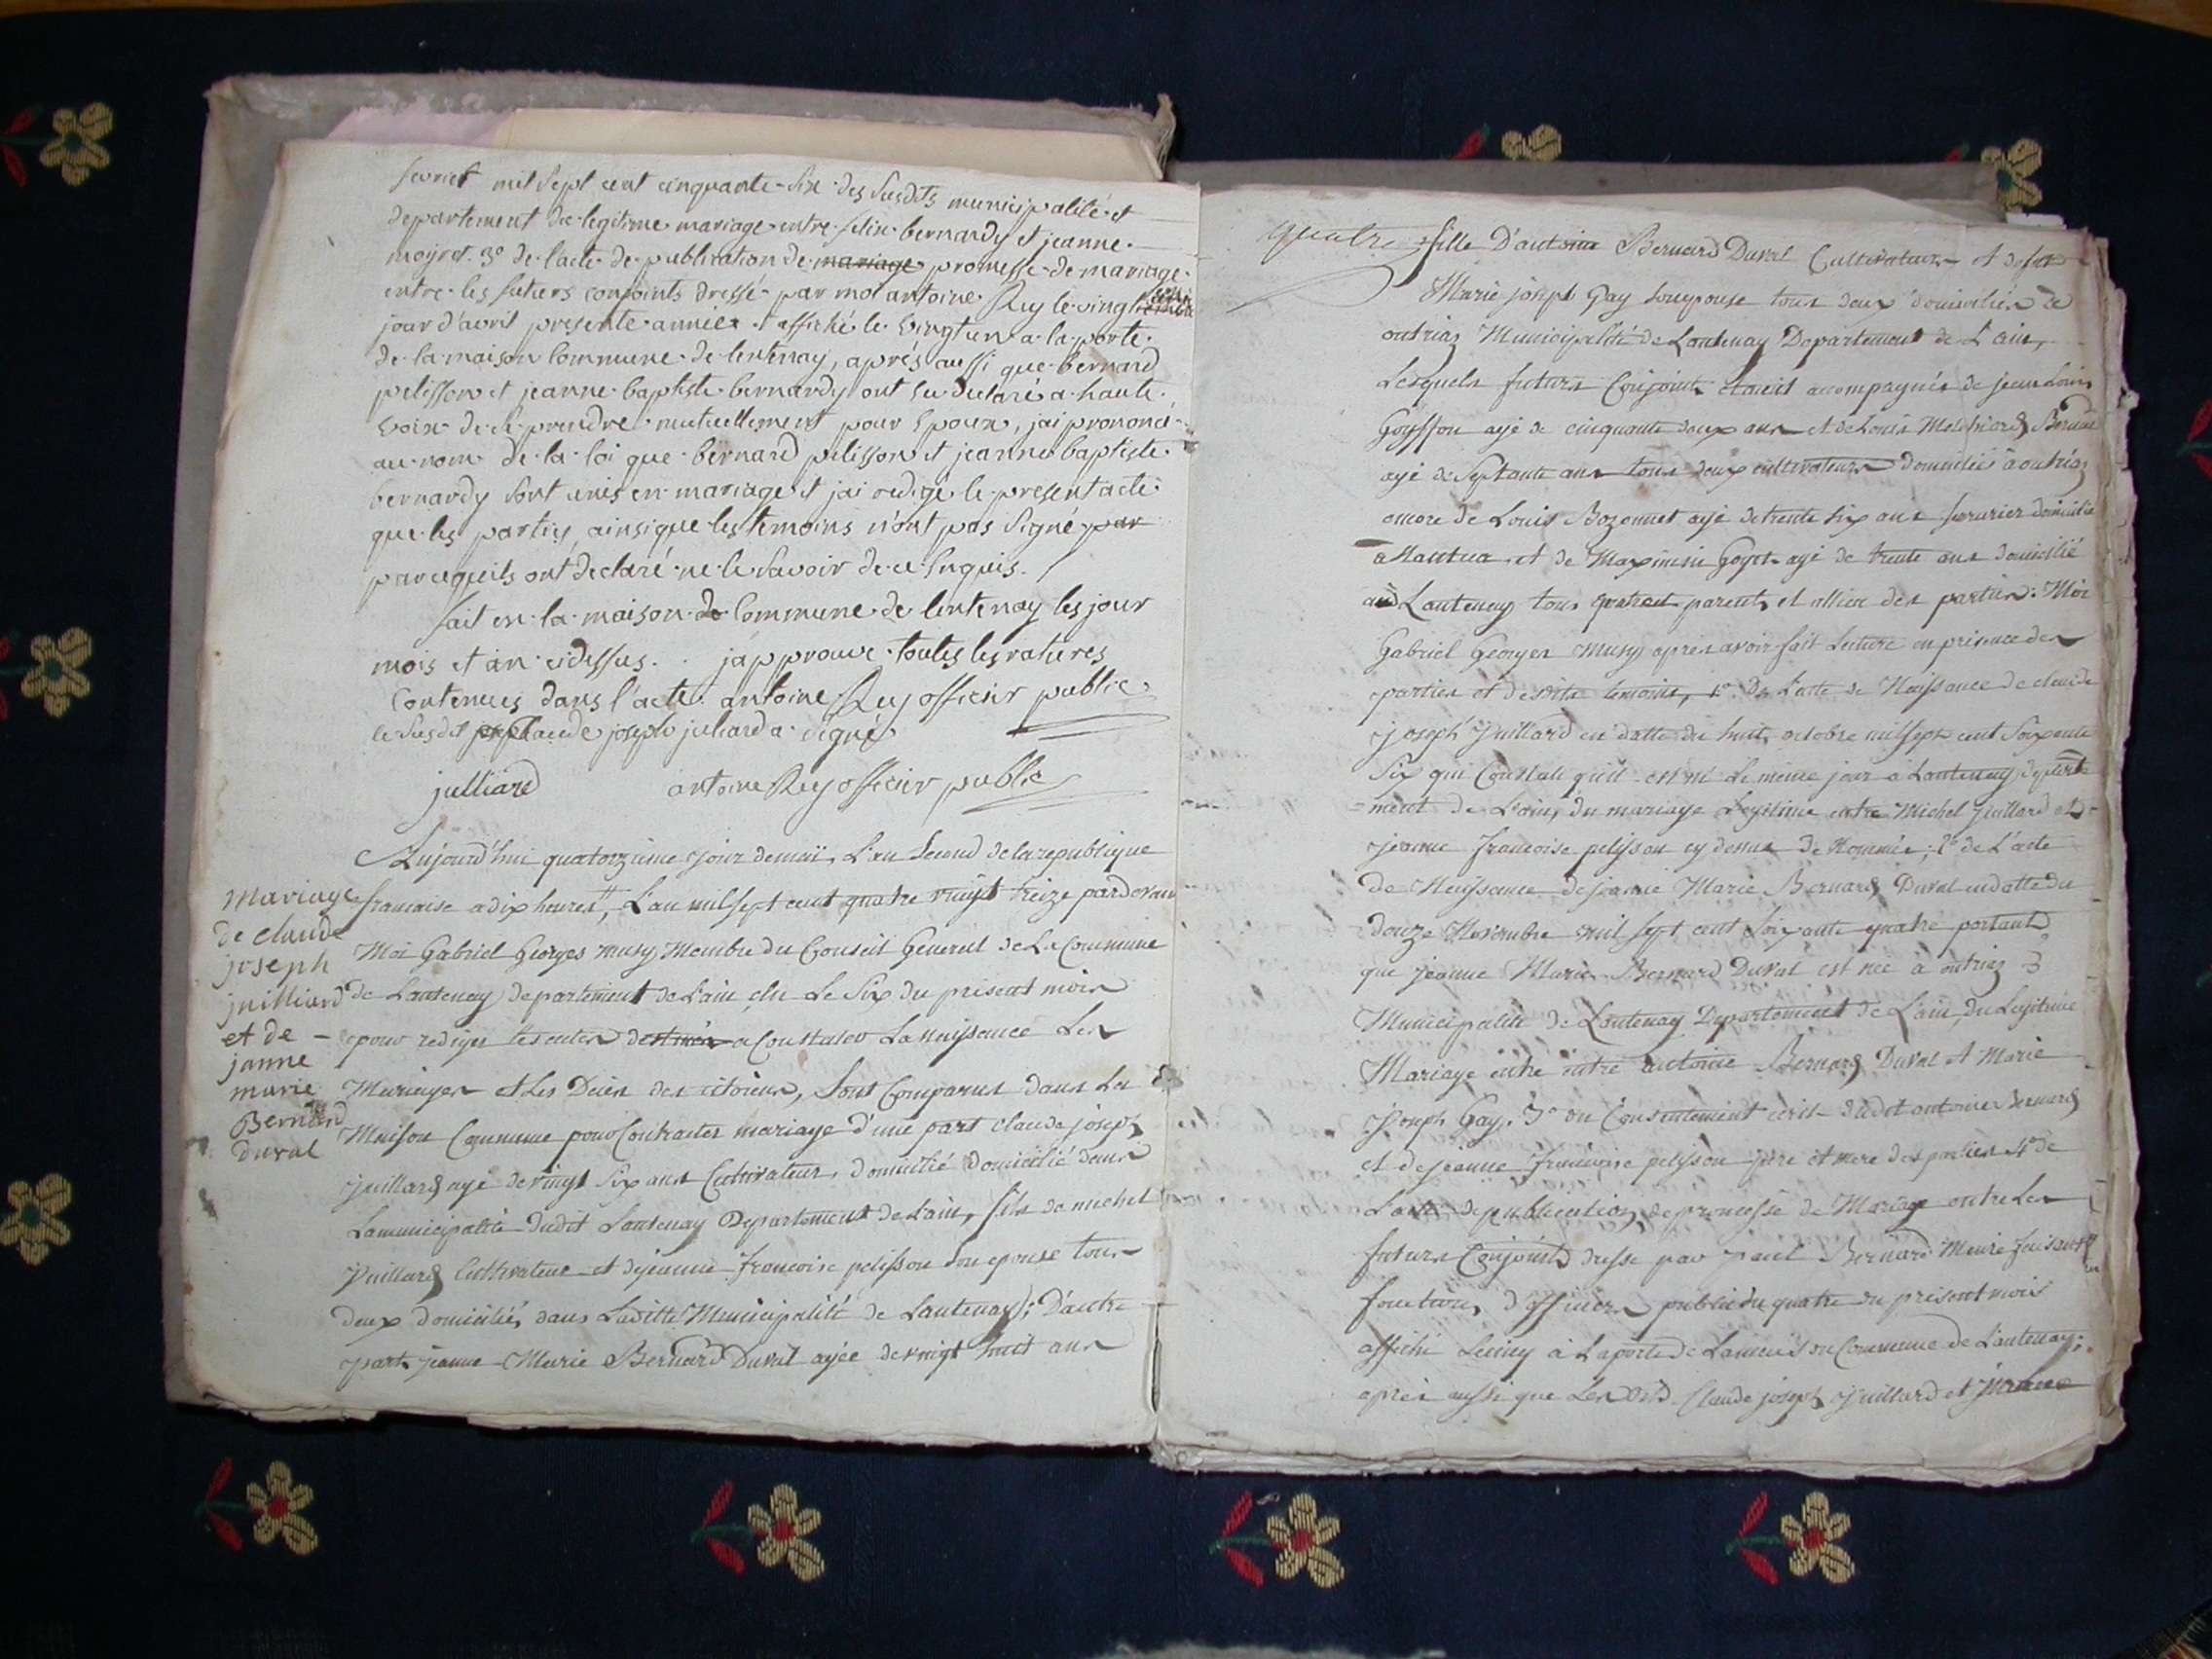 fevrier mil sept cent cinquante-six des susdits municipalité et
departement de legitime mariage entre felix bernardy et jeanne
moyret. 3º de l'acte de publication de mariage promesse de mariage
entre les futurs conjoints dressé par moi antoine Ruy le vingt
jour d'avril presente année et affiché le vingt un a la porte
de la maison commune de lentenay, après aussi que bernard
pelisson et jeanne baptiste bernardy ont eu declaré a haute
voix de se prendre mutuellement pour epoux, jai prononcé
au nom de la loi que bernard pelisson et jeanne baptiste
bernardy sont unis en mariage et jai redigé le present acte
que les parties, ainsique les temoins n'ont pas signé par
parcequils ont declaré ne le savoir de ce enquis.
fait en la maison de commune de lentenay les jour
mois et an cidessus. japprouve toutes les ratures
contenues dans l'acte antoine Ruy officier public
le susdit claude joseph juliard a signé
julliard antoine Ruy officier public
Mariage
de claude
joseph
juilliard
et de
janne
marie
Bernard
duval
Aujourd'hui quatorzieme jour de mai, L'an second de la republique
francaise a dix heures, L'an mil sept cent quatre vingt treize pardevant
Moi Gabriel Georges musy Membre du Conseil General de La Commune
de Lantenay departement de L'ain elu Le Six du present mois
pour rediger les actes destinés a Constater La naissance Les
Mariages et Les Décès des citoiens, Sont Comparus dans La
Maison Commune pour Contracter mariage d'une part claude joseph
juillard agé de vingt six ans Cultivateur, domicilié domicilié dans
La municipalité dudit Lantenay Departement de L'ain, fils de michel
juillard Cultivateur et de jeanne francoise pelisson son epouse tous
deux domiciliés dans Laditte Municipalité de Lantenay; D'autre
part jeanne Marie Bernard Duval agée de vingt huit ans
quatre fille D'antoine Bernard Duval Cultivateur et de
Marie joseph Gay son epouse tous deux domiciliés a
outriaz Municipalité de Lantenay Departement de L'ain,
Lesquels futurs Conjoints etaient accompagnés de jean Louis
Goyffon agé de cinquante deux ans et de Louis Bernard
agé de Septante ans tous deux cultivateurs domiciliés a outriaz
encore de Louis Bozonnet agé de trente six ans serrurier domicilié
a Nantua et de Maximin Goyet agé de trente ans domicilié
aud Lantenay tous parents et alliés des parties. Moi
Gabriel Georges musy apres avoir fait Lecture en presence des
parties et desdits temoins, 1º De L'acte de Naissance de claude
joseph juillard en datte du huit octobre mil sept cent Soixante
Six qui Constate qu'il est né Le même jour a Lantenay departe
=ment de L'ain, du mariage Legitime entre Michel juillard et
jeanne francoise pelisson cy dessus denommés; 2º de L'acte
de Naissance de jeanne Marie Bernard Duval en datte du
douze Novembre mil sept cent soixante quatre portant
que jeanne Marie Bernard Duval est née a outriaz
Municipalité de Lantenay Departement de L'ain, du Legitime
Mariage entre entre antoine Bernard Duval et Marie
joseph Gay. 3º du Consentement écrit dudit antoine Bernard
et de jeanne françoise pelisson pere et mere des parties 4º de
L'acte de publication de promesse de Mariage entre Les
futurs Conjoints dressé par paul Bernard Maire faisant
fonctions d'officier public du quatre du present mois
affiché Le cinq à La porte de La maison Commune de Lantenay;
après aussi que Les dits Claude joseph juillard et jeanne